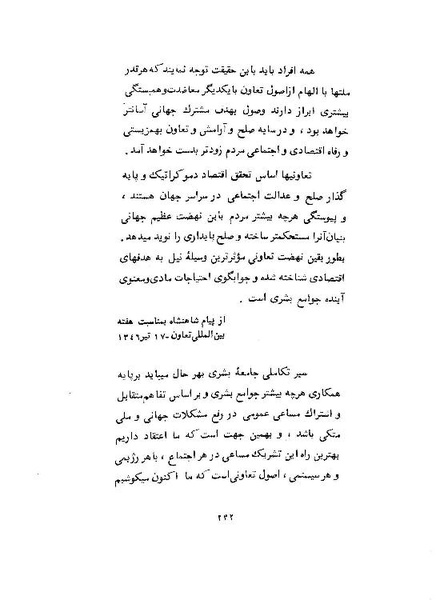 همه افراد باید باین حقیقت توجه نمایند که هرقدر
ملتها با الهام از اصول تعاون بایکدیگر معاضدت و همبستگی
بیشتری ابراز دارند وصول بهدف مشترک جهانی آسانتر
خواهد بود ، و در سایه صلح و آرامش و تعاون بهمزیستی
و رفاه اقتصادی و اجتماعی مردم زودتر بدست خواهد آمد .
تعاونیها اساس تحقق اقتصاد دموکراتیک و پایه
گذار صلح و عدالت اجتماعی در سراسر جهان هستند ،
و پیوستگی هرچه بیشتر مردم باین نهضت عظیم جهانی
بنیان آنرا مستحکمتر ساخته و صلح پایداری را نوید میدهد .
بطور یقین نهضت تعاونی مؤثرترین وسیلهٔ نیل به هدفهای
اقتصادی شناخته شده و جوابگوی احتیاجات مادی و معنوی
آینده جوامع بشری است .
از پیام شاهنشاه بمناسبت هفته
بین المللی تعاون - ۱۷ تیر ۱۳۴۶
سیر تکاملی جامعهٔ بشری بهر حال میباید بر پایه
همکاری هرچه بیشتر جوامع بشری و بر اساس تفاهم متقابل
و اشتراک مساعی عمومی در رفع مشکلات جهانی و ملی
متکی باشد ، و بهمین جهت است که ما اعتقاد داریم
بهترین راه این تشریک مساعی در هر اجتماع ، با هر رژیمی
و هر سیستمی ، اصول تعاونی است که ما اکنون میکوشیم
۲۴۲